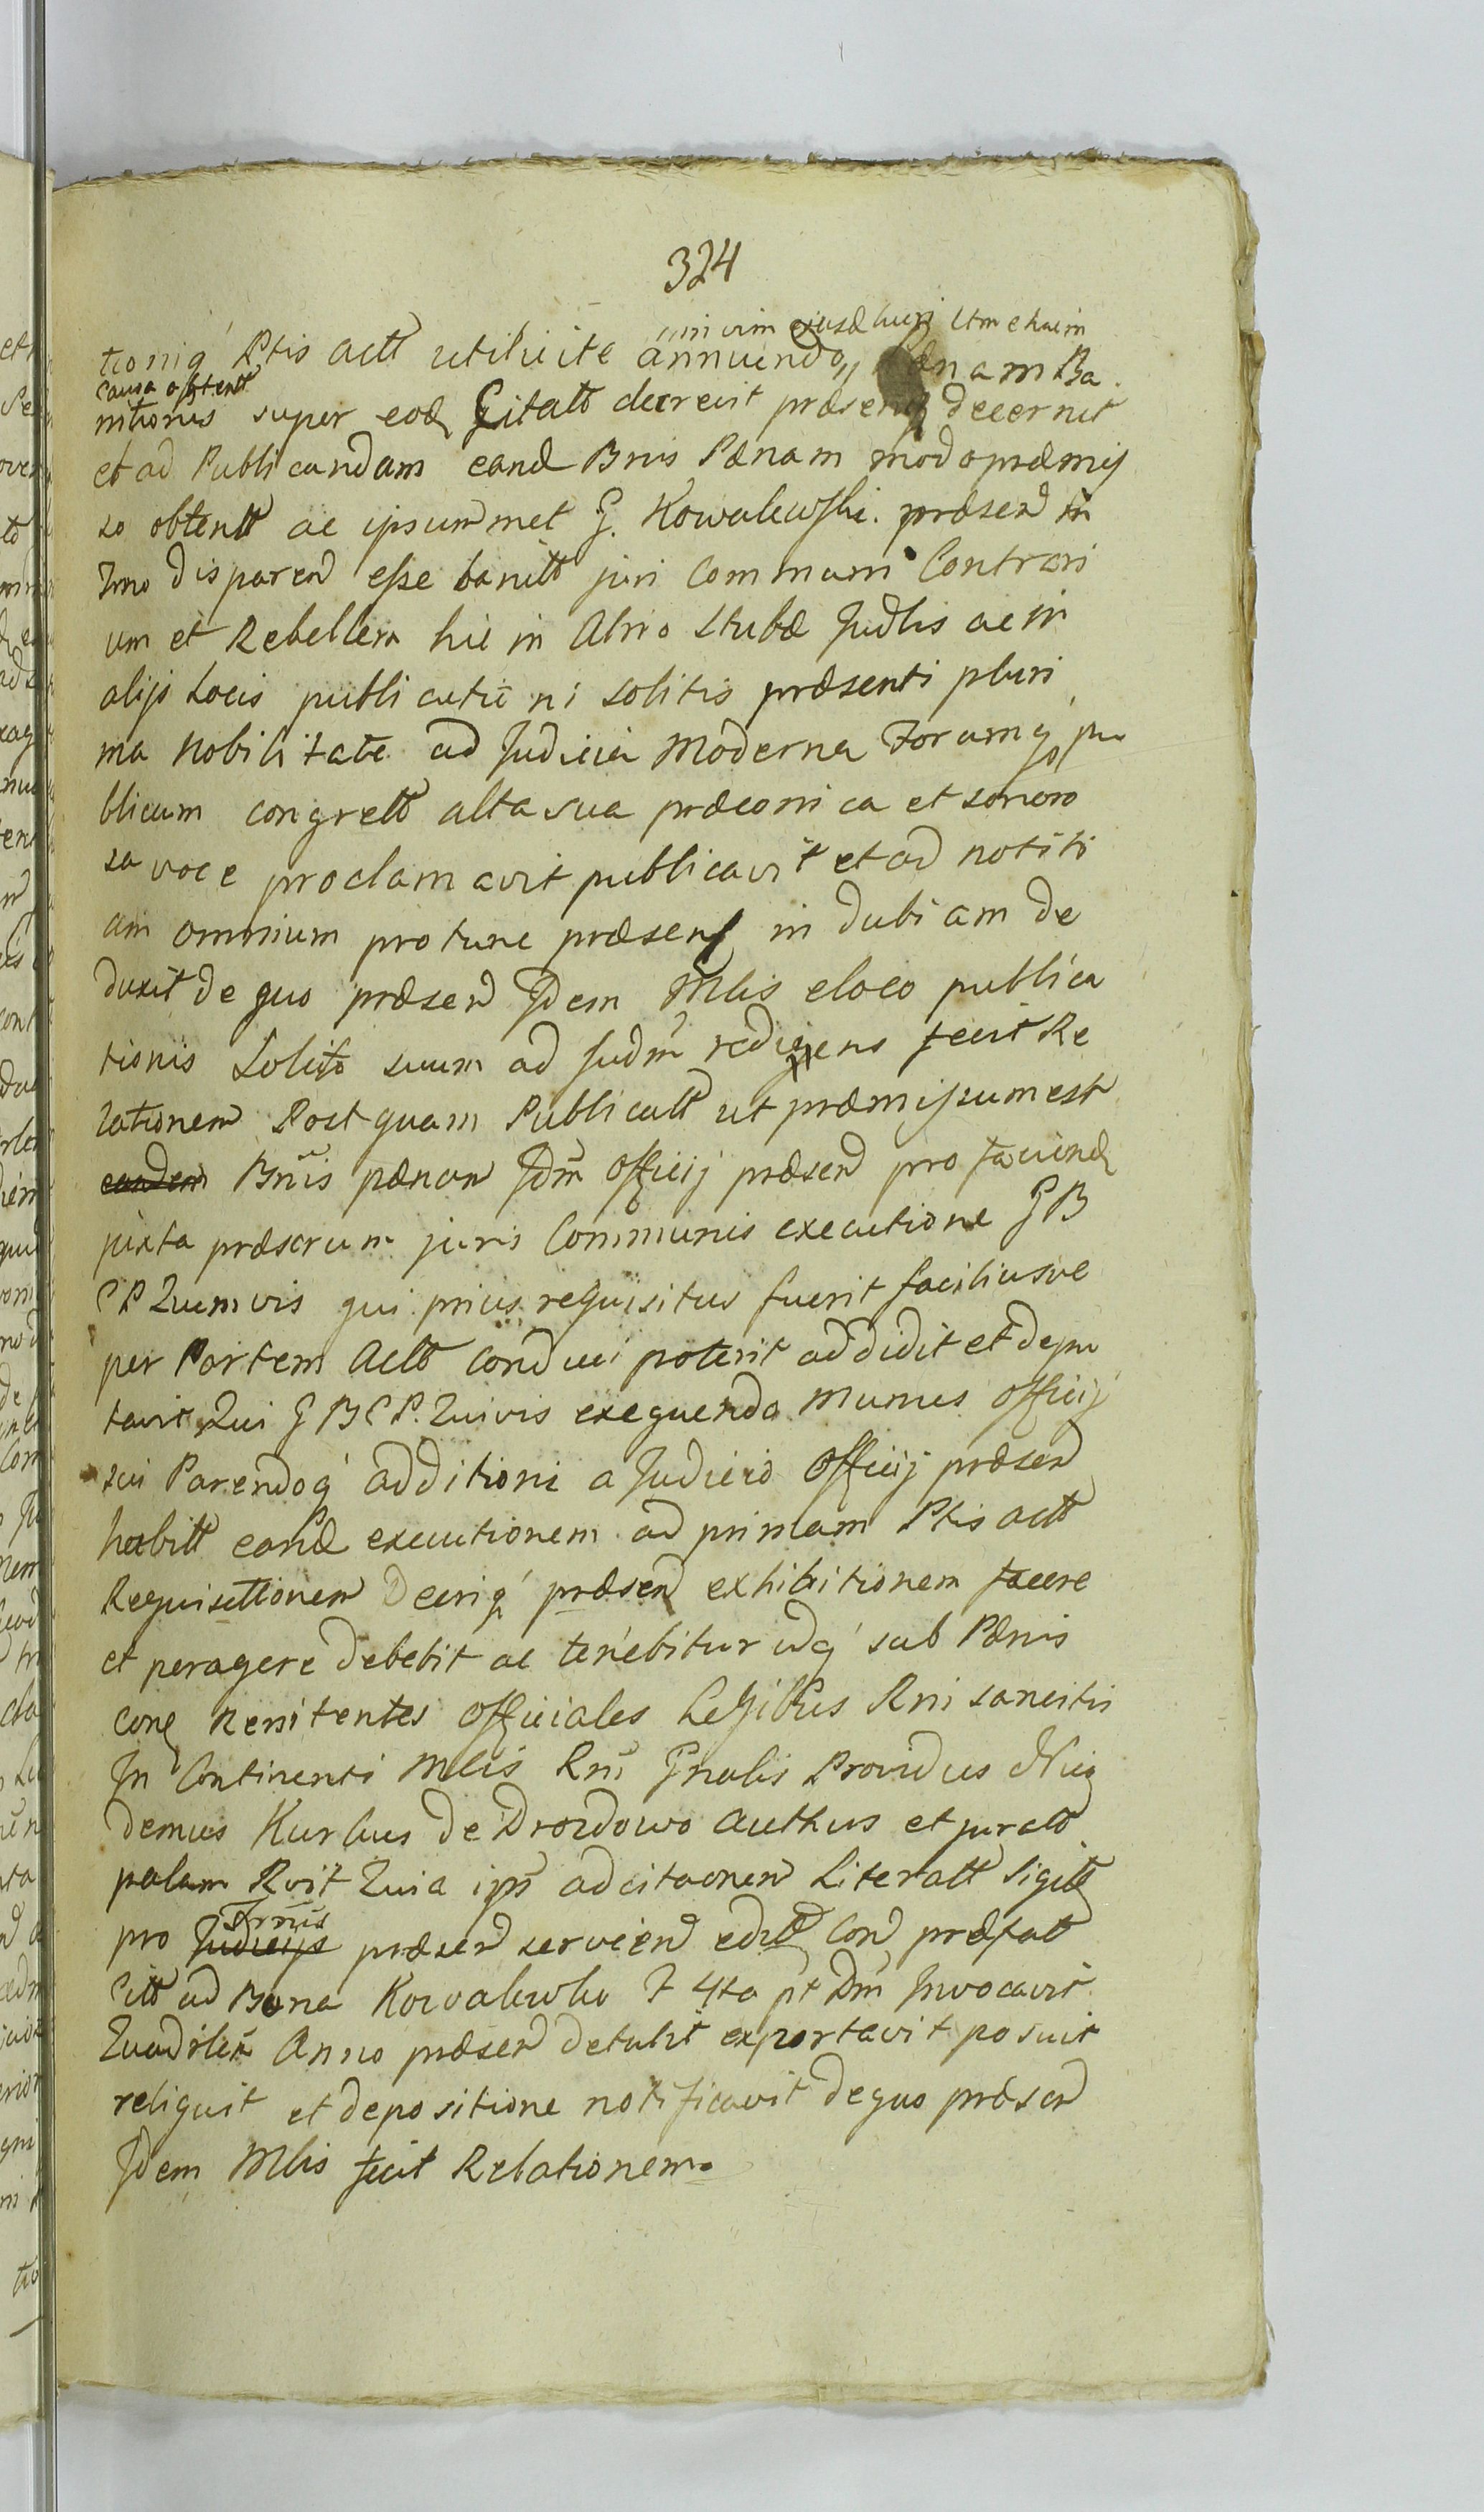 324
tioniq Ptis actt utilicite annuendo Pænam Ba
causa obtentt
nitionis super eod Citatt decrevit præsentiq decernit
et ad Publicandam eand Bnis Pænam modo præmis
so obtentt ac ipsummet G. Kowalewski præsend in
Tmo disparend esse banitt juri Communi Contrari
um et Rebellem hic in Atrio Stubæ Judlis ac in
alijs Locis publicationi solitis præsenti pluri
ma Nobilitate ad Judicia Moderna Forumq pu
blicum congregtt alta sua præconica et sonoro
sa voce proclamavit publicavit et ad notiti
am omnium protunc præsen in dubiam de
duxit de quo præsend Idem Mlis e loco publica
tionis Solito suum ad Judm redigens fecit Re
lationem Postquam Publicatt ut præmissum est
eandem Bnis pænam Jdm Officij præsend pro faciend
juxta præscrum juris Communis executione GB
CP Quemvis qui prius requisitus fuerit faciliusve
per Partem Actt conduci poterit addidit et depu
tavit Qui GBCP. Quivis exequendo Munus Officij
sui Parendoq additioni a Judicio Officij præsend
habitt eand executionem ad primam Ptis actt
Requisittionem Decriq præsend exhibitionem facere
et peragere debebit ac tenebitur idq sub Pænis
conq Renitentes Officiales Legibus Rni sancitis
In Continenti Mlis Rni Gnalis Providus Nico
demus Kurkus de Drozdowo authus et jurato
palam Rvit Quia ipse ad citaonem Literatt Sigitt
Trmis
pro Judicijs præsend serviend editt Con præfatt
Citt ad Bona Kowalewko F 4ta pt Dm Invocavit
Quadrlem Anno præsend detulit exportavit posuit
reliquit et depositione notificavit de quo præsend
Idem Mlis fecit Relationem.